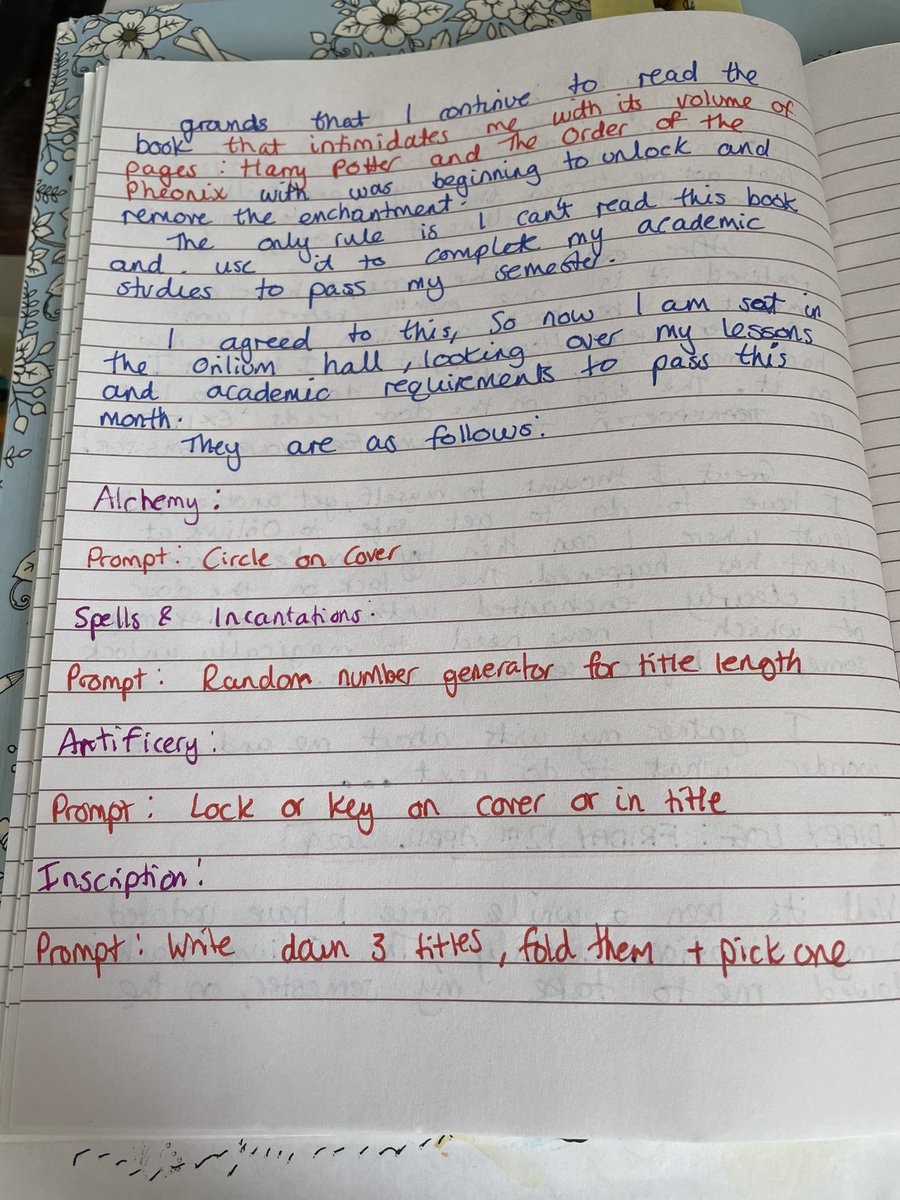 grands that I continue to read the
book that intimidates me with its volume of
pages : Harry Potter and The Order of the
Pheonix with was beginning to unlock and
remove the enchantment.
The only rule is I can't read this book
and use it to complete my academic
studies to pass my semester.
I agreed to this, So now I am sat in
the Orilium hall, looking over my lessons
and academic requirements to pass this
month.
They are as follows:
Alchemy:
Prompt: Circle on Cover.
Spells & Incantations:
Prompt: Random number generator for title length
Artificery:
Prompt: Lock or key on cover or in title
Inscription:
Prompt: Write down 3 titles, fold them + pick one